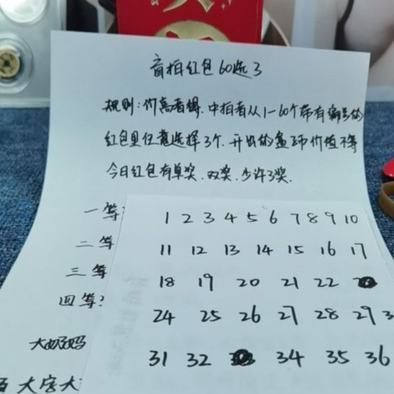 盲拍红包60选3
规则:价高者得,中拍者从1-60个带有编号的
红包里任意选择3个.开出的盒币价值不等
今日红包有单奖.双奖.少许3奖.
一等
二等
三等
四等
大奶妈
百 大字大
1 2 3 4 5 6 7 8 9 10
11 12 13 14 15 16 17
18 19 20 21 22
24 25 26 27 28 29 3
31 32 34 35 36